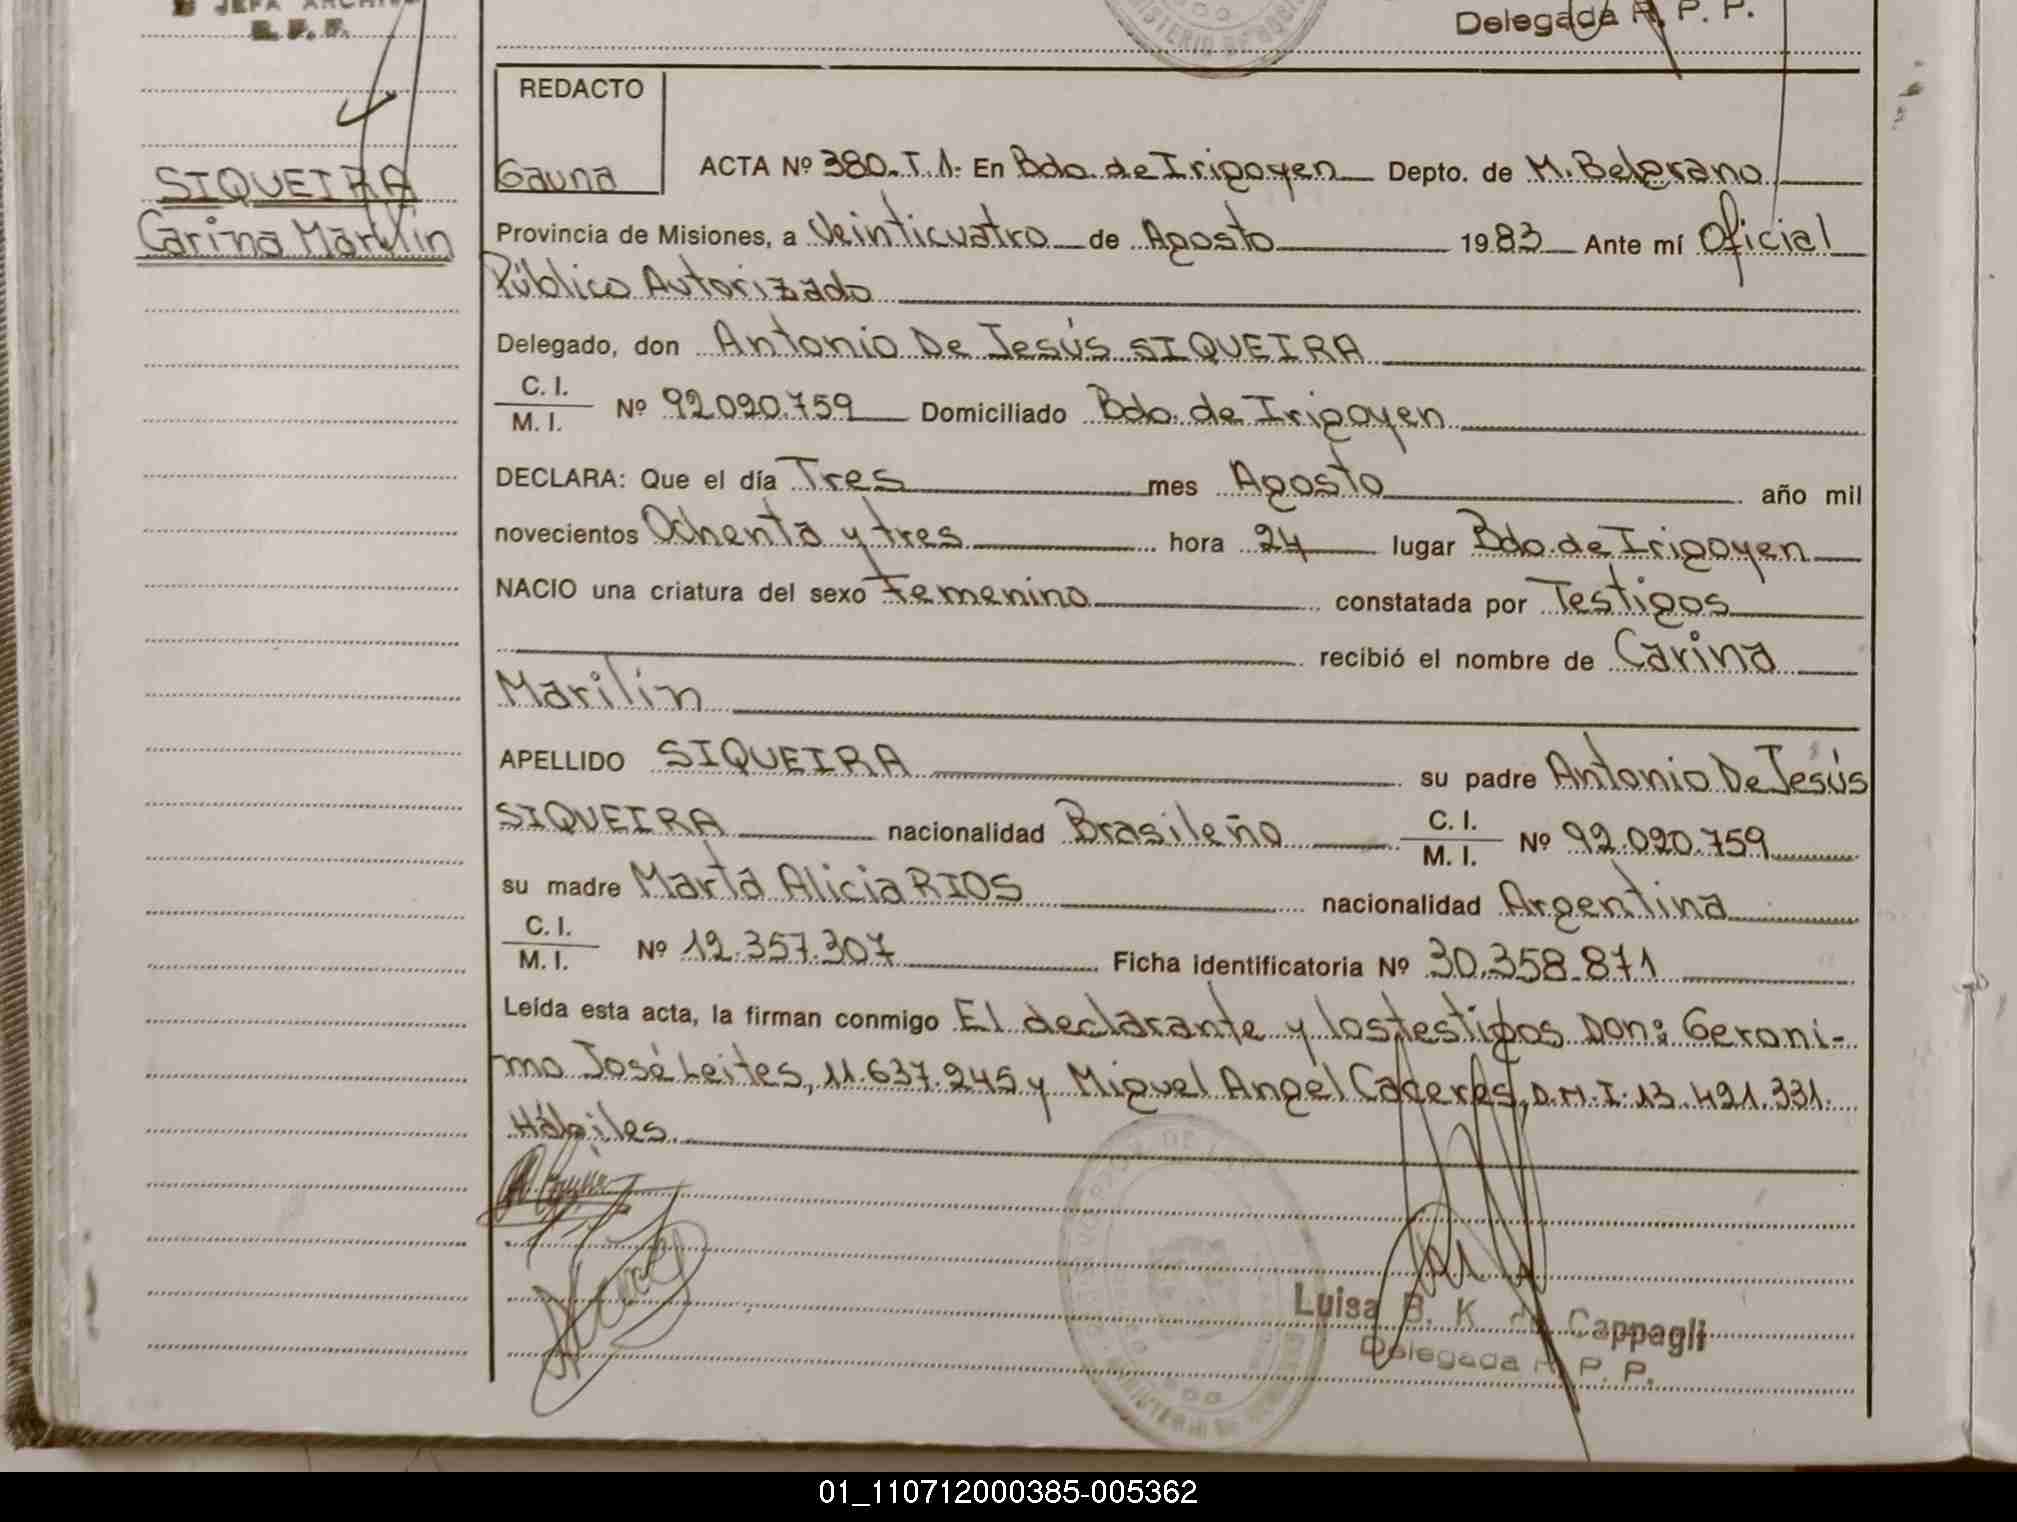 JEFA ARCHIVO
R. P. P.
Delegada R. P. P.
SIQUEIRA
Carina Marilin
REDACTO
Gauna
ACTA Nº 380. T. 1. En Bdo. de Irigoyen Depto. de M. Belgrano
Provincia de Misiones, a Veinticuatro de Agosto 1983 Ante mí Oficial
Público Autorizado
Delegado, don Antonio De Jesús SIQUEIRA
C. I.
M. I. Nº 92.090.759 Domiciliado Bdo. de Irigoyen
DECLARA: Que el día Tres mes Agosto año mil
novecientos Ochenta y tres hora 24 lugar Bdo. de Irigoyen
NACIO una criatura del sexo Femenino constatada por Testigos
recibió el nombre de Carina
Marilín
APELLIDO SIQUEIRA su padre Antonio De Jesús
SIQUEIRA nacionalidad Brasileño C. I.
M. I. Nº 92.090.759
su madre Marta Alicia RIOS nacionalidad Argentina
C. I.
M. I. Nº 12.357.307 Ficha identificatoria Nº 30.358.871
Leída esta acta, la firman conmigo El declarante y los testigos Don: Geroni-
mo José Leites, 11.637.245 y Miguel Angel Caceres, D.M.I. 13.421.331.
Hábiles.
Luisa B. K. de Cappagli
Delegada R. P. P.
01_110712000385-005362